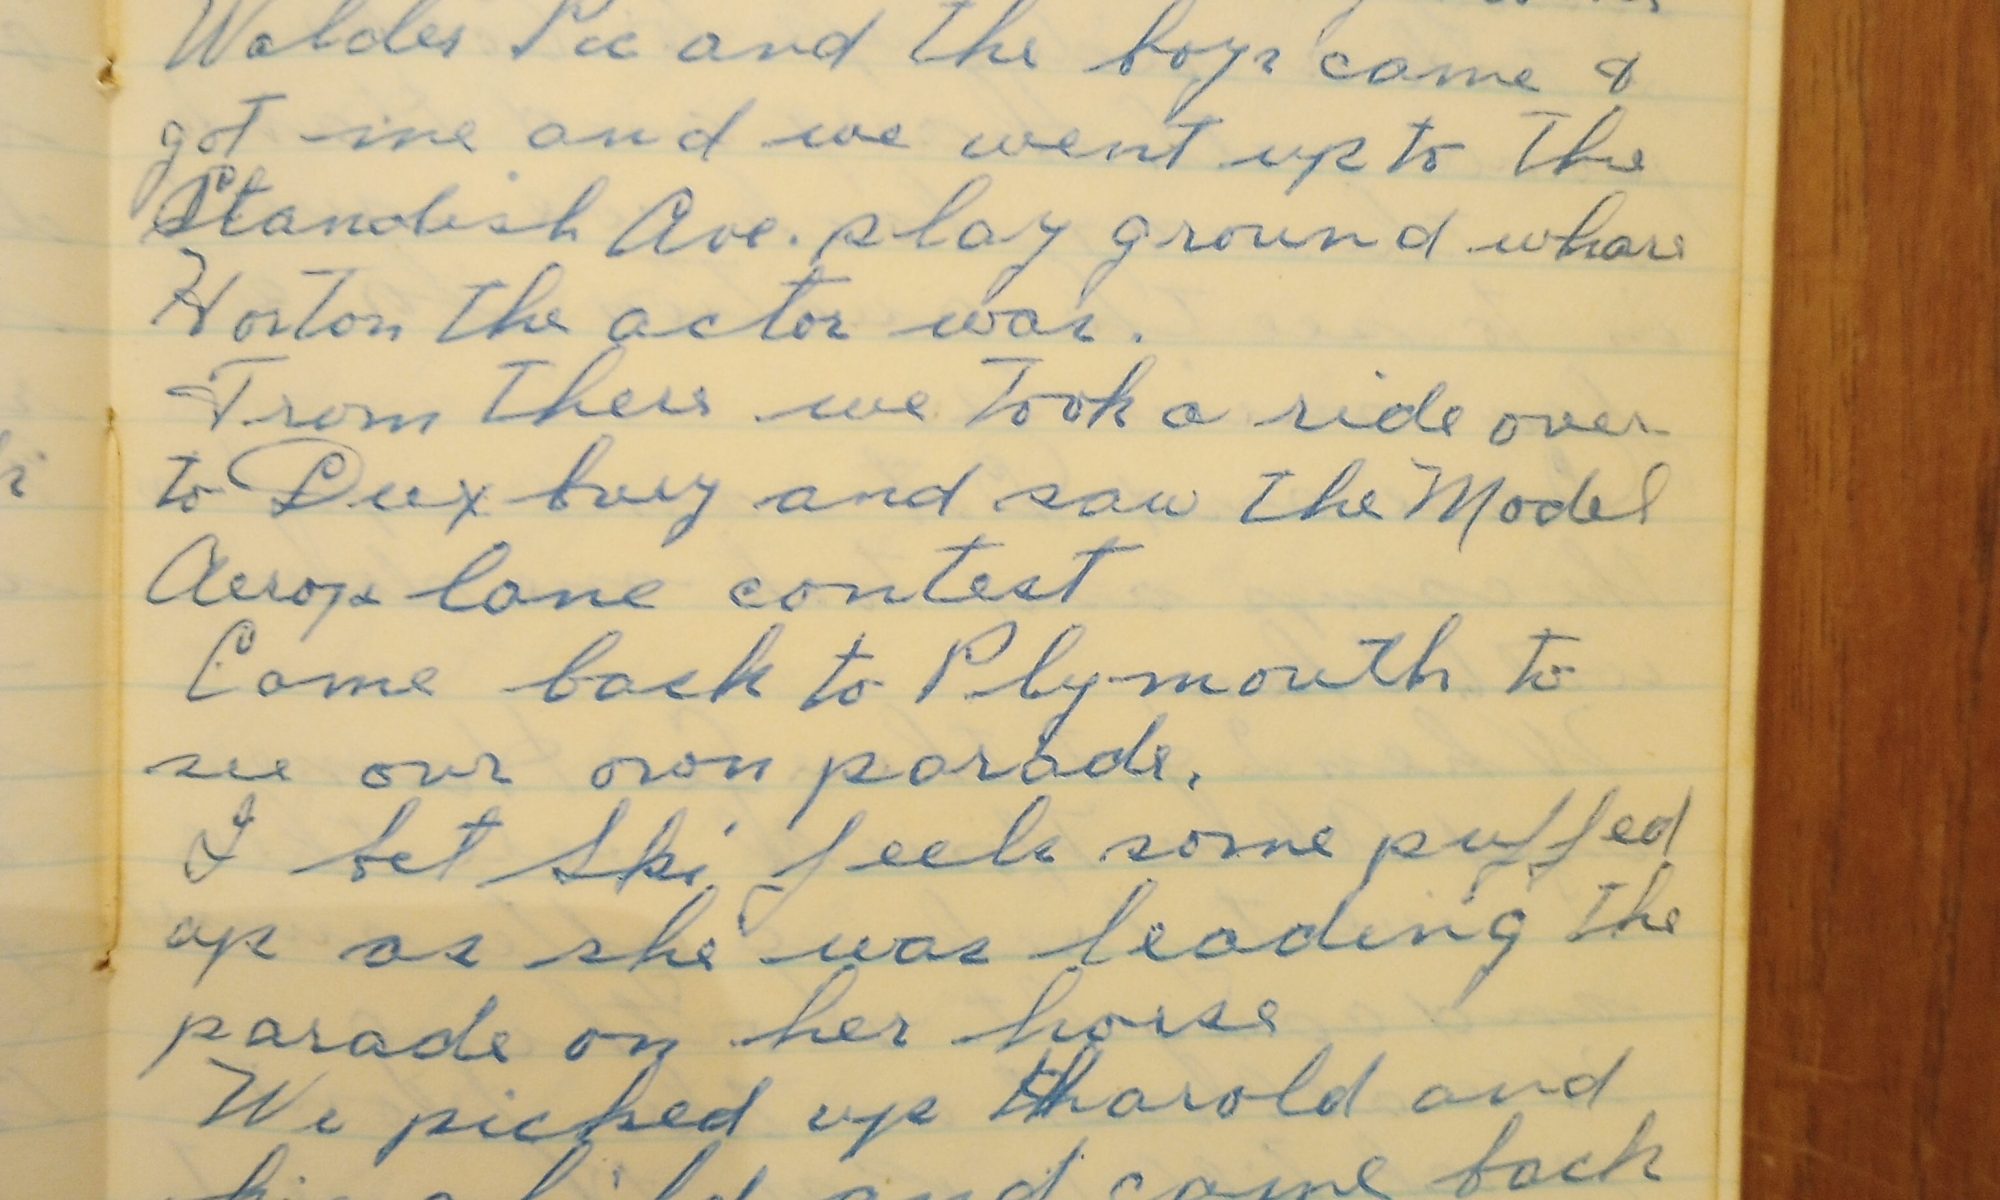 and the boys came &
got me and we went up to the
Standish Ave. play ground whare
Horton the actor was.
From there we took a ride over
to Duxbury and saw the Model
Aeroplane contest
Came back to Plymouth to
see our own parade.
I bet Ski feels some puffed
up as she was leading the
parade on her horse
We picked up Harold and
his child and came back